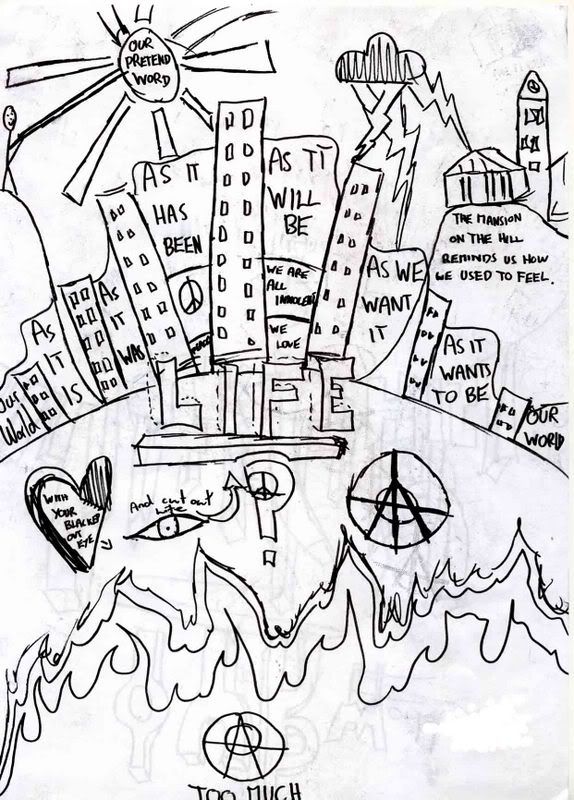 OUR
PRETEND
WORD
AS IT
HAS
BEEN
AS IT
WILL
BE
THE MANSION
ON THE HILL
REMINDS US HOW
WE USED TO FEEL.
WE ARE
ALL
INNOCENT
WE
LOVE
AS WE
WANT
IT
AS
IT
WAS
AS
IT
IS
AS IT
WANTS
TO BE
OUR
World
OUR
WORLD
LIFE
WITH
YOUR
BLACKED
OUT
EYE
And cut out
?
A
A
TOO MUCH